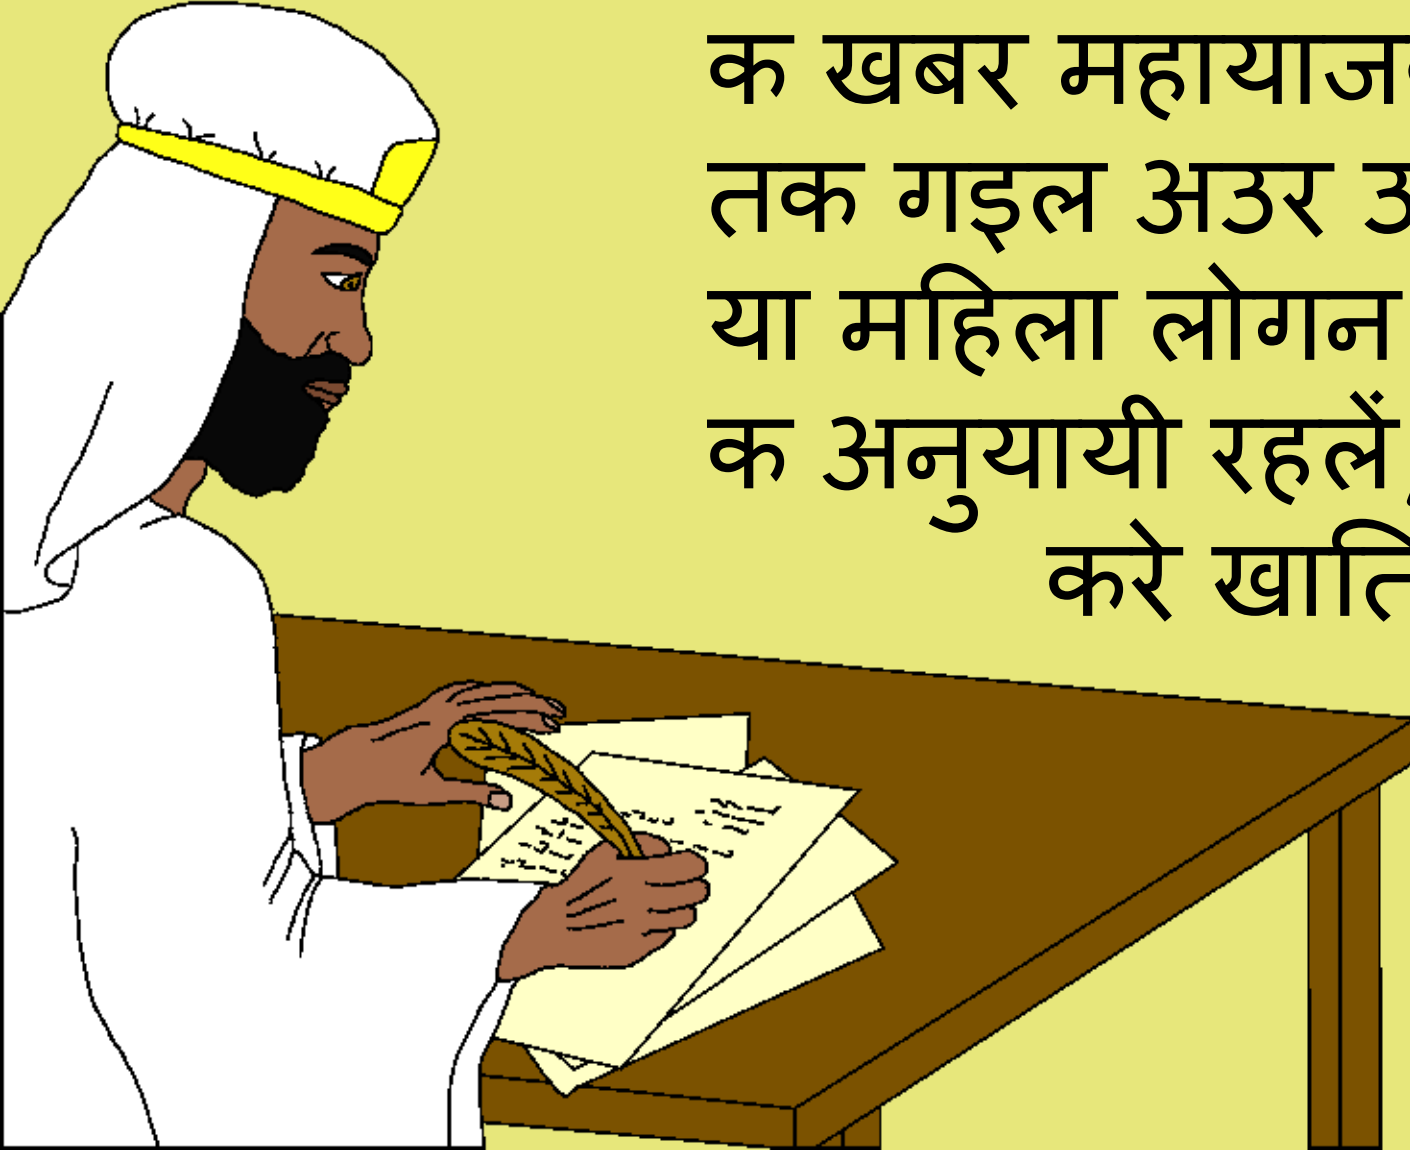 क खबर
तक गइल अउर
या महिला लोगन
क अनुयायी रहलें
करे